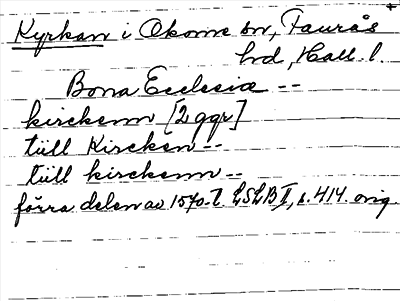 Kyrkan i Okome sn, Faurås
hd, Hall. l.
Bona Ecclesiæ --
kirckenn [2 ggr]
tüll Kircken --
tüll kirckenn --
förra delen av 1570-t. LSLB II, s. 414. orig.